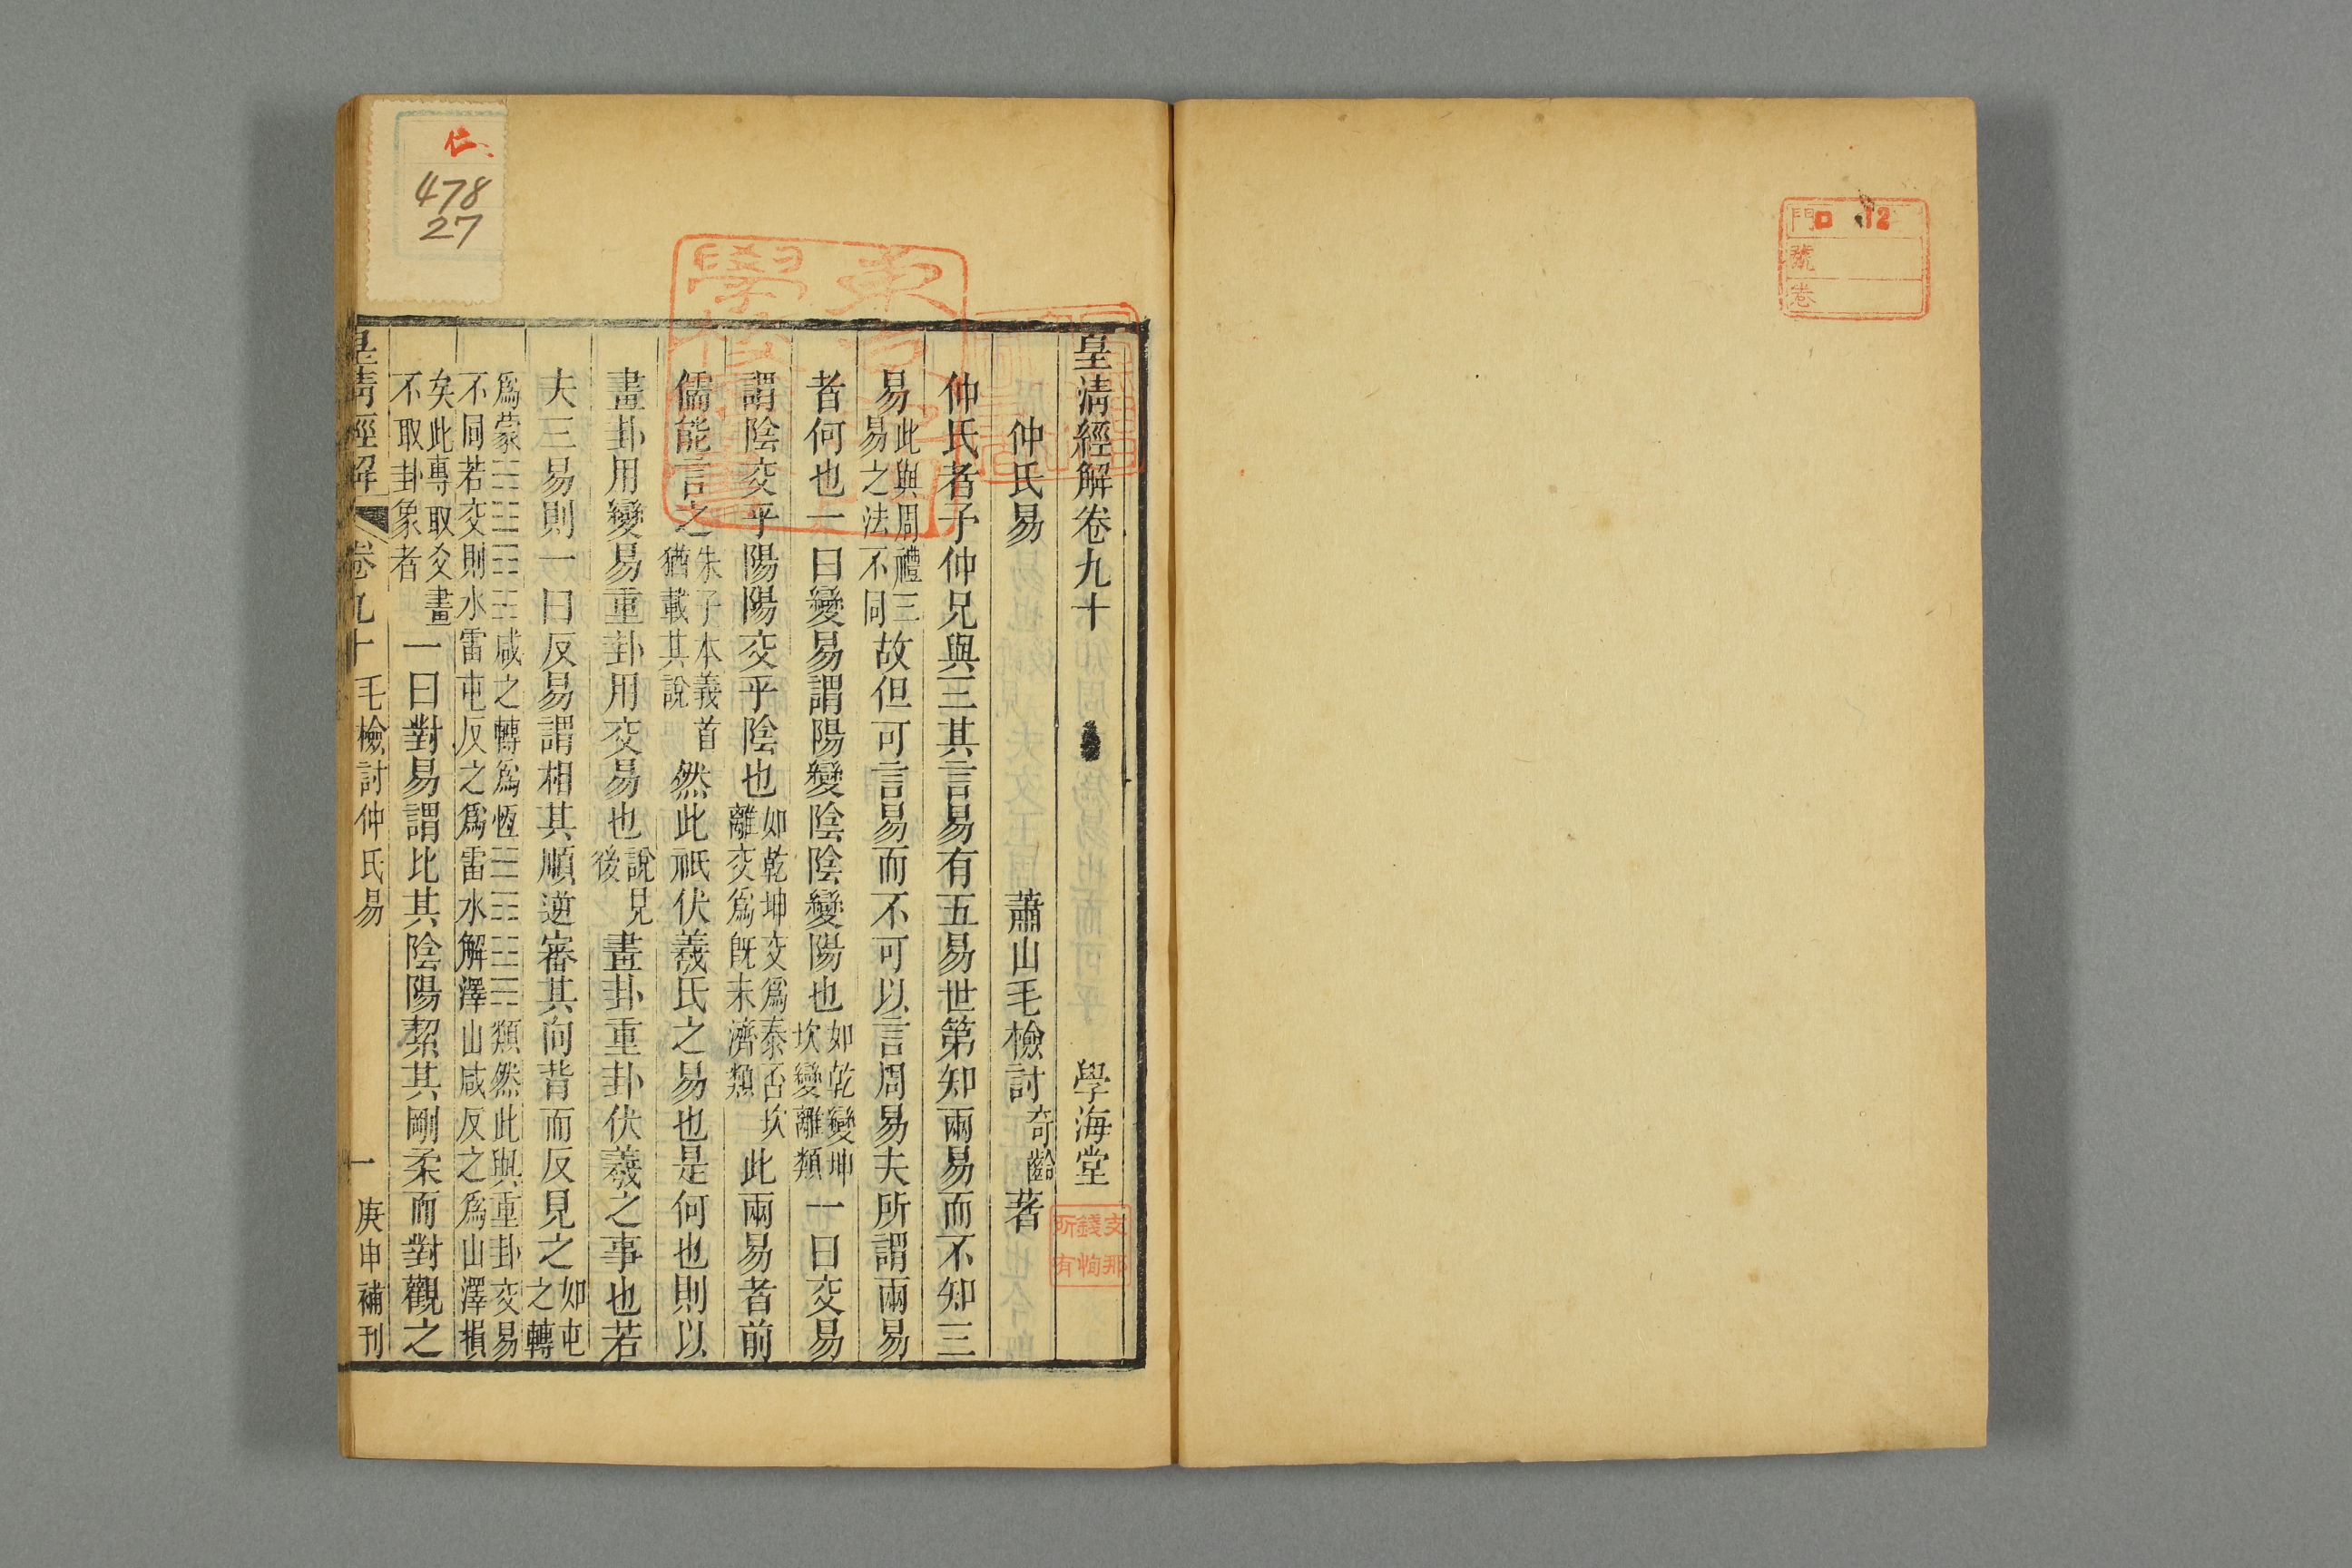 門 口 12
號
卷
皇清經解卷九十 學海堂
支那
錢恂
所有
仲氏易 蕭山毛檢討奇齡著
仲氏者予仲兄與三其言易有五易世第知兩易而不知三
易此與周禮三易之法不同故但可言易而不可以言周易夫所謂兩易
者何也一曰變易謂陽變陰陰變陽也如乾變坤坎變離類一曰交易
謂陰交乎陽陽交乎陰也如乾坤交爲泰否坎離交爲旣未濟類此兩易者前
儒能言之朱子本義首猶載其說然此祇伏羲氏之易也是何也則以
畫卦用變易重卦用交易也說見後畫卦重卦伏羲之事也若
夫三易則一曰反易謂相其順逆審其向背而反見之如屯之轉
爲蒙咸之轉爲恆類然此與重卦交易
不同若交則水雷屯反之爲雷水解澤山咸反之爲山澤損
矣此專取爻畫不取卦象者一曰對易謂比其陰陽絜其剛柔而對觀之
皇清經解 卷九十 毛檢討仲氏易 一 庚申補刊
仁
478
27